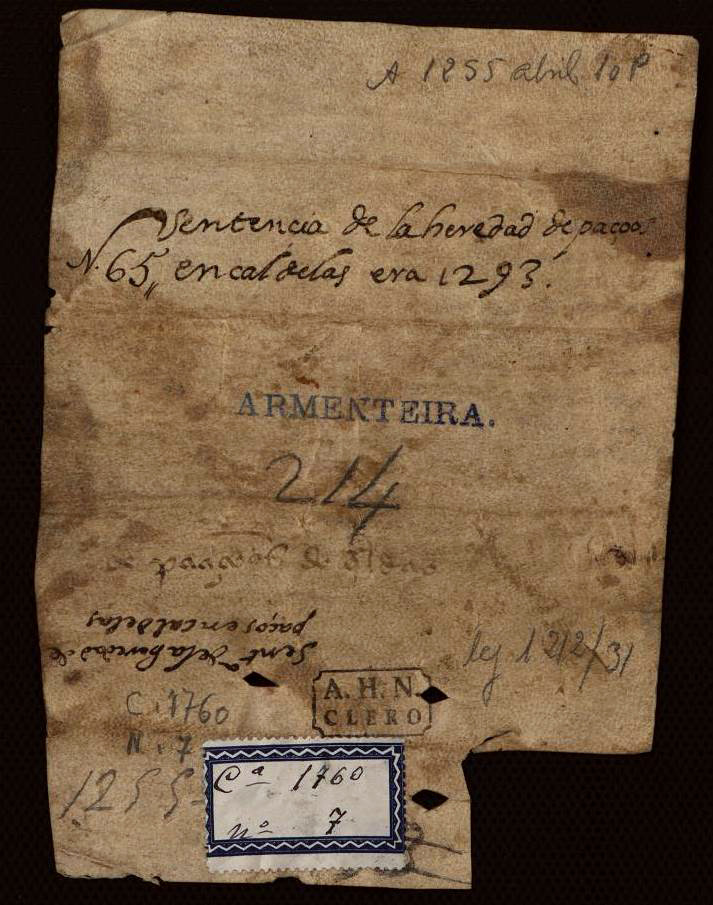 A 1255 abril 10 P
Sentencia de la heredad de paços
N. 65,, en caldelas era 1293.
ARMENTEIRA.
214
de
Sent.ª de la heredad de
paços en caldelas
leg 1212/31
A. H. N.
CLERO
C. 1760
N. 7
1255
Cª 1760
nº 7